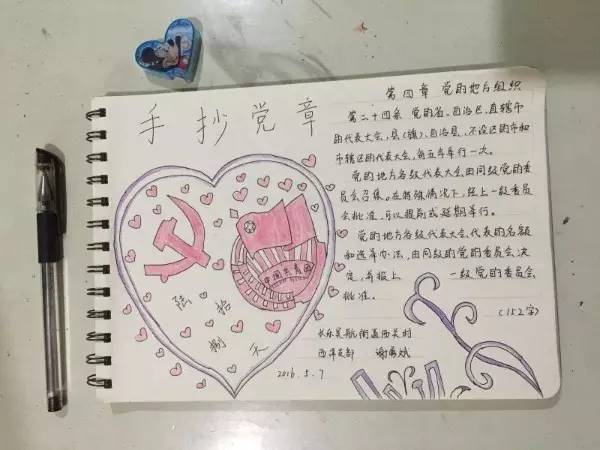 手抄党章
中国共青团
陆拾
2016.5.7
第四章 党的地方组织
第二十四条 党的省、自治区、直辖市
的代表大会,县(旗)、自治县、不设区的市和
市辖区的代表大会,每五年举行一次。
党的地方各级代表大会由同级党的委
员会召集。在特殊情况下,经上一级委员
会批准,可以提前或延期举行。
党的地方各级代表大会代表的名额
和选举办法,由同级的党的委员会决
定,并报上 一级党的委员会
批准。
(152字)
长乐吴航街道西关村
支部 谢